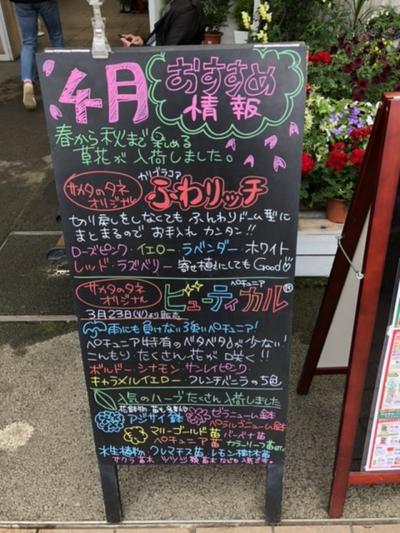 4月
おすすめ
情報
春から秋まで楽しめる
草花が入荷しました。
サカタのタネ
オリジナル
カリブラコア
ふわリッチ
切り戻しをしなくても ふんわりドーム型に
まとまるので お手入れ カンタン!!
ローズピンク・イエロー・ラベンダー・ホワイト
レッド・ラズベリー 寄せ植えにしてもGood♡
サカタのタネ
オリジナル
ペチュニア
ビューティカル®
3月23日(火)より販売
雨にも負けない強いペチュニア!
ペチュニア特有のベタベタが少ない!
こんもり たくさん花が咲く!!
ボルドー・シナモン・サンレイピンク・
キャラメルイエロー・フレンチバニラの5色
人気のハーブたくさん入荷しました
アジサイ鉢
ゼラニューム鉢
ペラルゴニューム鉢
マリーゴールド苗
ペチュニア苗
バーベナ苗
カラーリーフ苗
水生植物・クレマチス苗・レモン樹木苗